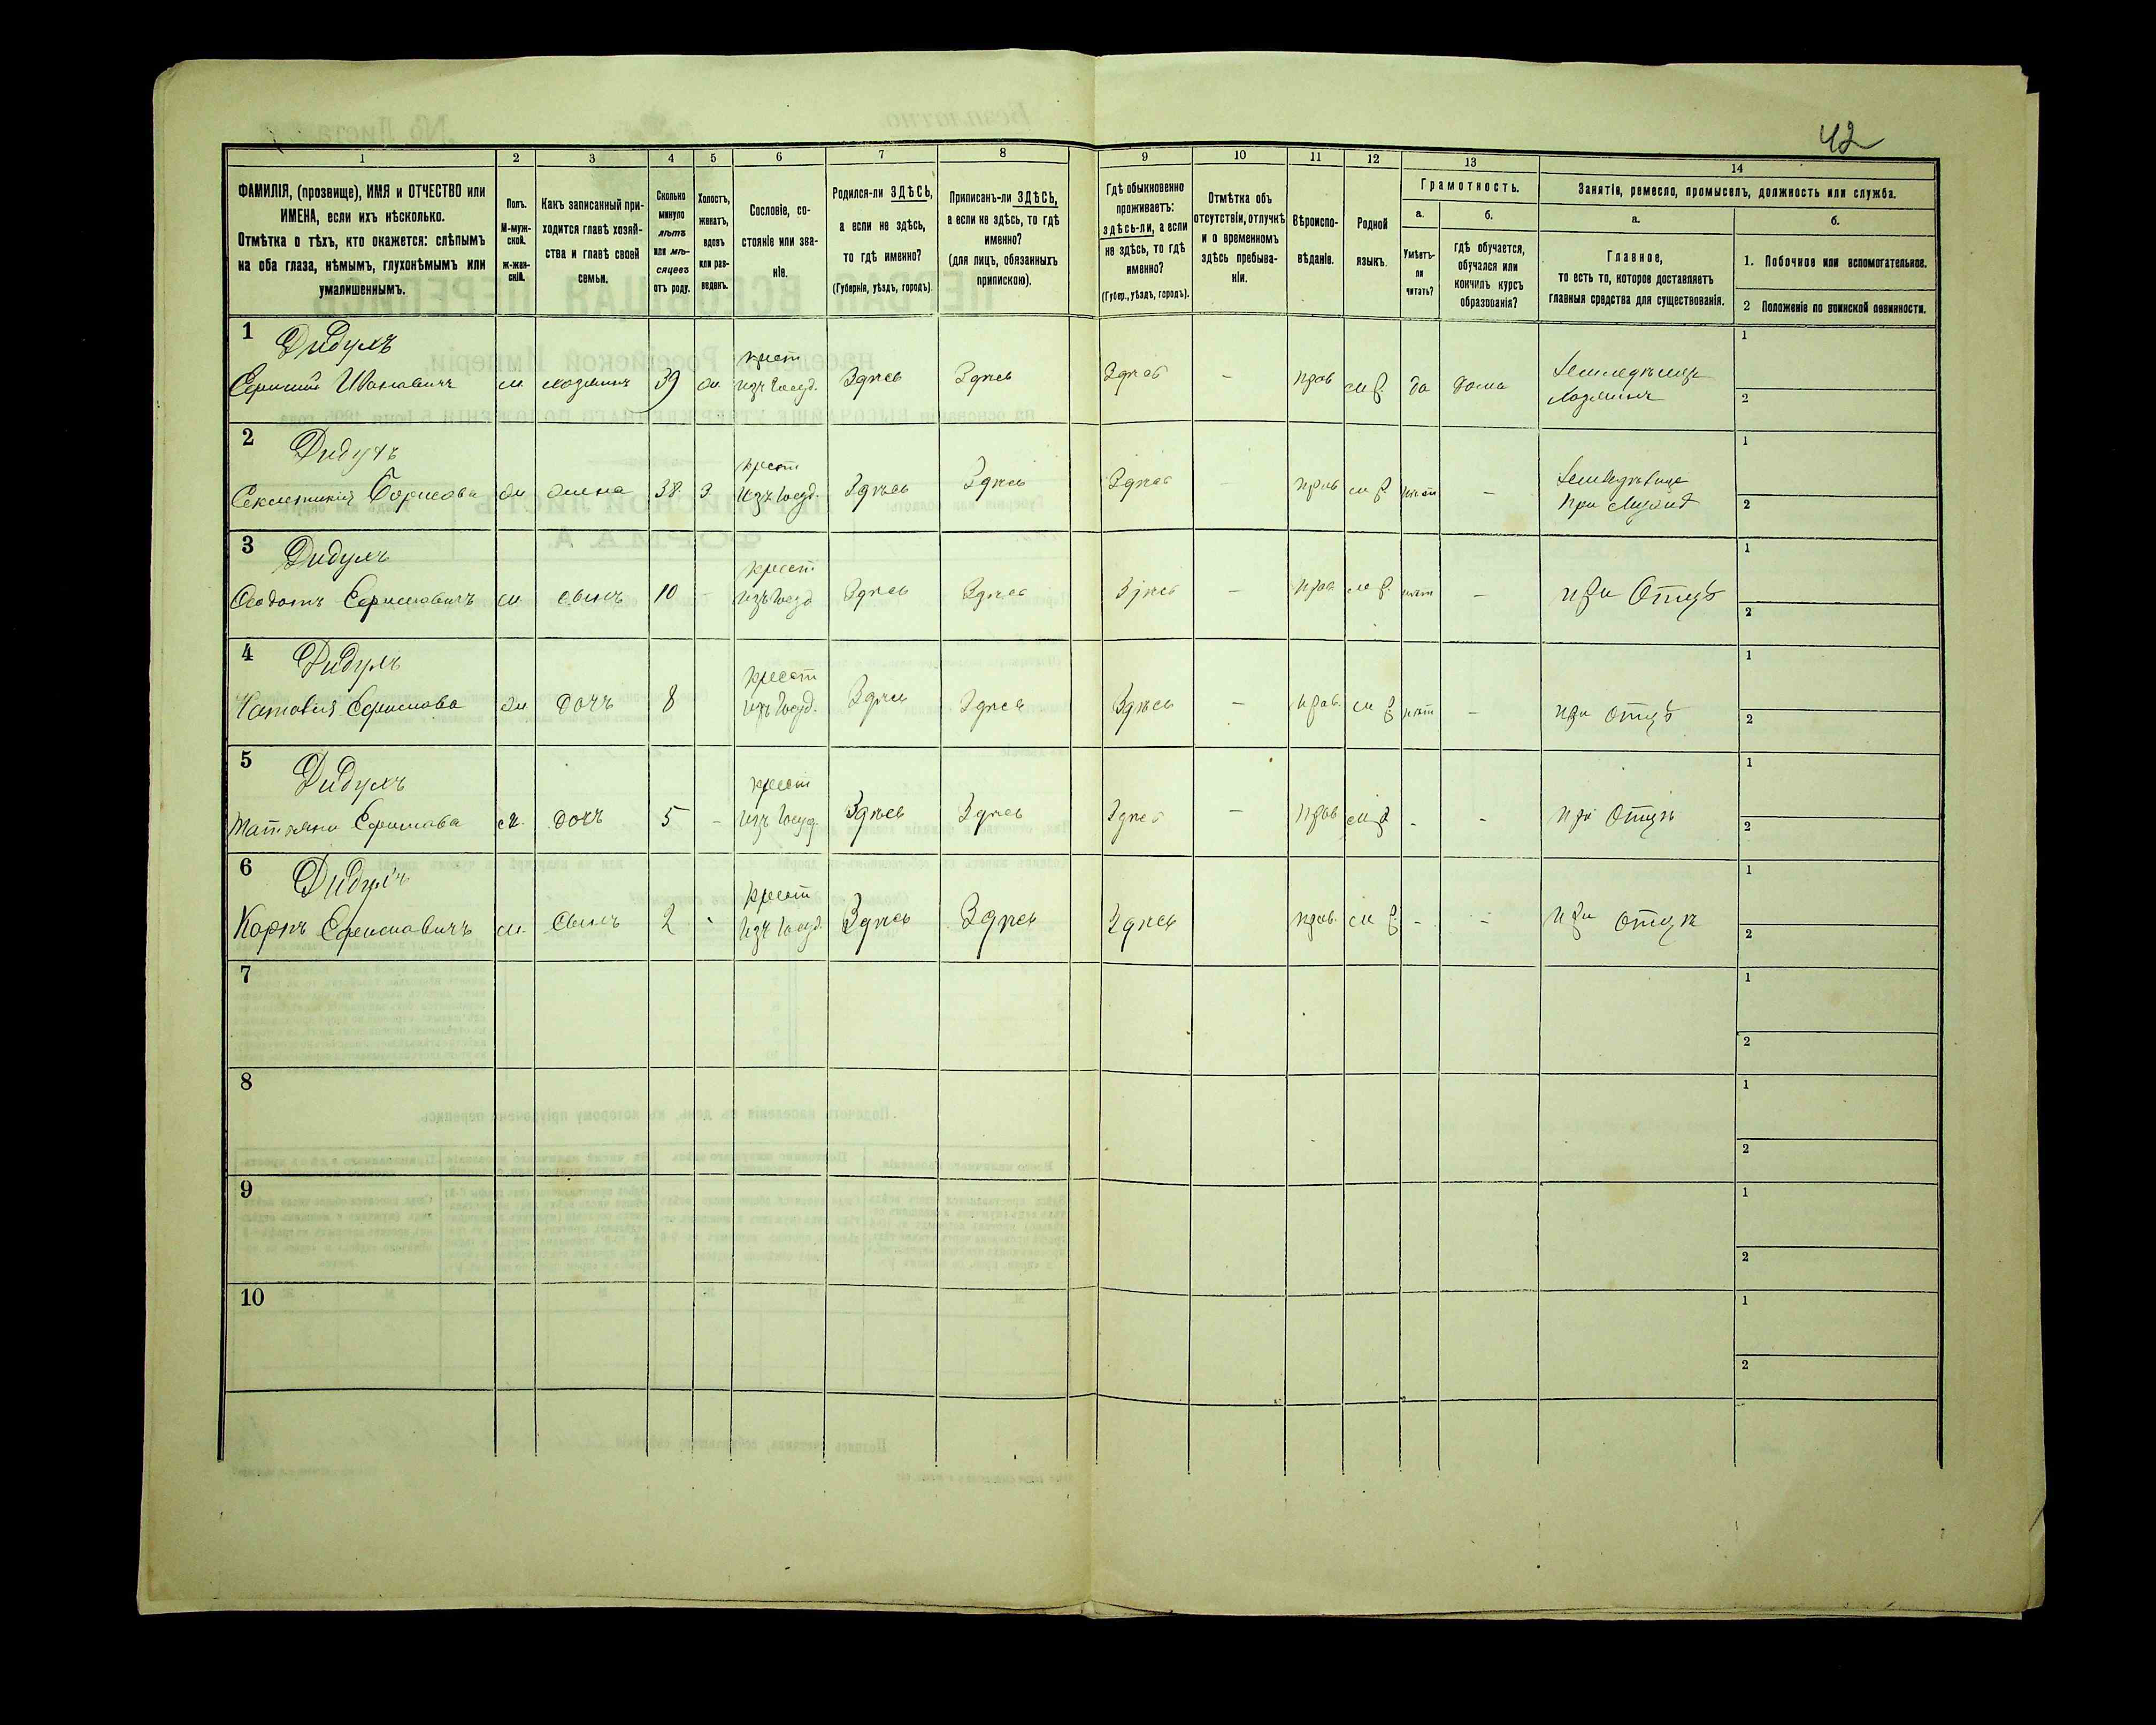 42
1 2 3 4 5 6 7 8 9 10 11 12 13 14
ФАМИЛІЯ, (прозвище), ИМЯ и ОТЧЕСТВО или
ИМЕНА, если ихъ нѣсколько.
Отмѣтка о тѣхъ, кто окажется: слѣпымъ
на оба глаза, нѣмымъ, глухонѣмымъ или
умалишеннымъ.
Полъ.
М-муж-
ской.
ж-жен-
скій.
Какъ записанный при-
ходится главѣ хозяй-
ства и главѣ своей
семьи.
Сколько
минуло
лѣтъ
или мѣ-
сяцевъ
отъ роду.
Холостъ,
женатъ,
вдовъ
или раз-
веденъ.
Сословіе, со-
стояніе или зва-
ніе.
Родился-ли ЗДѢСЬ,
а если не здѣсь,
то гдѣ именно?
(Губернія, уѣздъ, городъ).
Приписанъ-ли ЗДѢСЬ,
а если не здѣсь, то гдѣ
именно?
(для лицъ, обязанныхъ
припискою).
Гдѣ обыкновенно
проживаетъ:
здѣсь-ли, а если
не здѣсь, то гдѣ
именно?
(Губер., уѣздъ, городъ).
Отмѣтка объ
отсутствіи, отлучкѣ
и о временномъ
здѣсь пребыва-
ніи.
Вѣроиспо-
вѣданіе.
Родной
языкъ.
Грамотность.
а.
Умѣетъ-
ли
читать?
б.
Гдѣ обучается,
обучался или
кончилъ курсъ
образованія?
Занятіе, ремесло, промыселъ, должность или служба.
а.
Главное,
то есть то, которое доставляетъ
главныя средства для существованія.
б.
1. Побочное или вспомогательное.
2 Положеніе по воинской повинности.
1 Дидухъ
Ефимій Ивановичъ м хозяинъ 39 ж крест изъ Госуд. Здѣсь Здѣсь Здѣсь — прав м р да дома Земледѣлецъ хозяинъ 1 2
2 Дидухъ
Секлетикія Борисова ж жена 38. З. крест изъ Госуд. Здѣсь Здѣсь Здѣсь — прав м р. нѣт — при мужѣ 1 2
3 Дидухъ
Федотъ Ефимовичъ м сынъ 10 - крест изъ Госуд Здѣсь Здѣсь Здѣсь — прав м р. нѣт — при Отцѣ 1 2
4 Дидухъ
Наталія Ефимова ж дочъ 8 крест изъ Госуд. Здѣсь Здѣсь Здѣсь — прав. м р нѣт — при отцѣ 1 2
5 Дидухъ
Татьяна Ефимова ж. дочъ 5 - крест изъ Госуд. Здѣсь Здѣсь Здѣсь — прав м р - - при отцѣ 1 2
6 Дидухъ
Карпъ Ефимовичъ м. Сынъ 2 - крест изъ Госуд. Здѣсь Здѣсь Здѣсь прав. м р - - при отцѣ 1 2
7 1 2
8 1 2
9 1 2
10 1 2